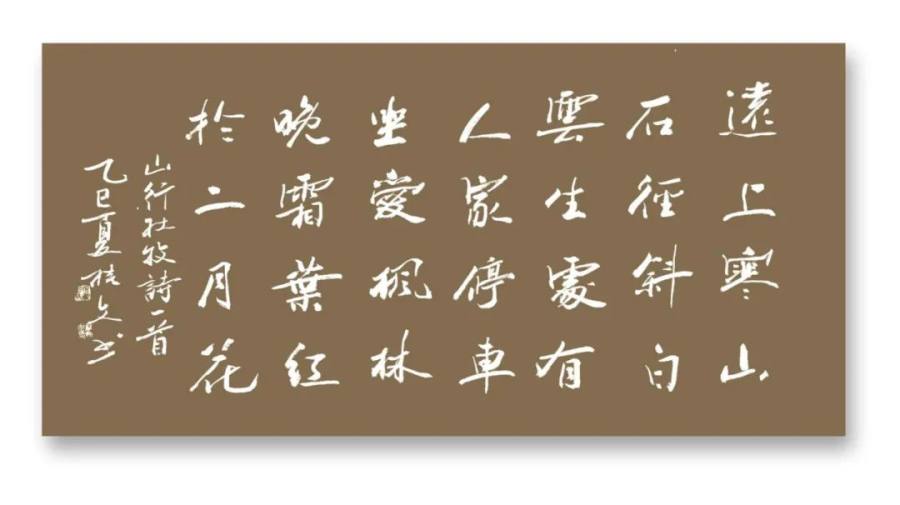 遠上寒山
石徑斜白
雲生處有
人家停車
坐愛楓林
晚霜葉紅
於二月花
山行杜牧詩一首
乙巳夏桂文书